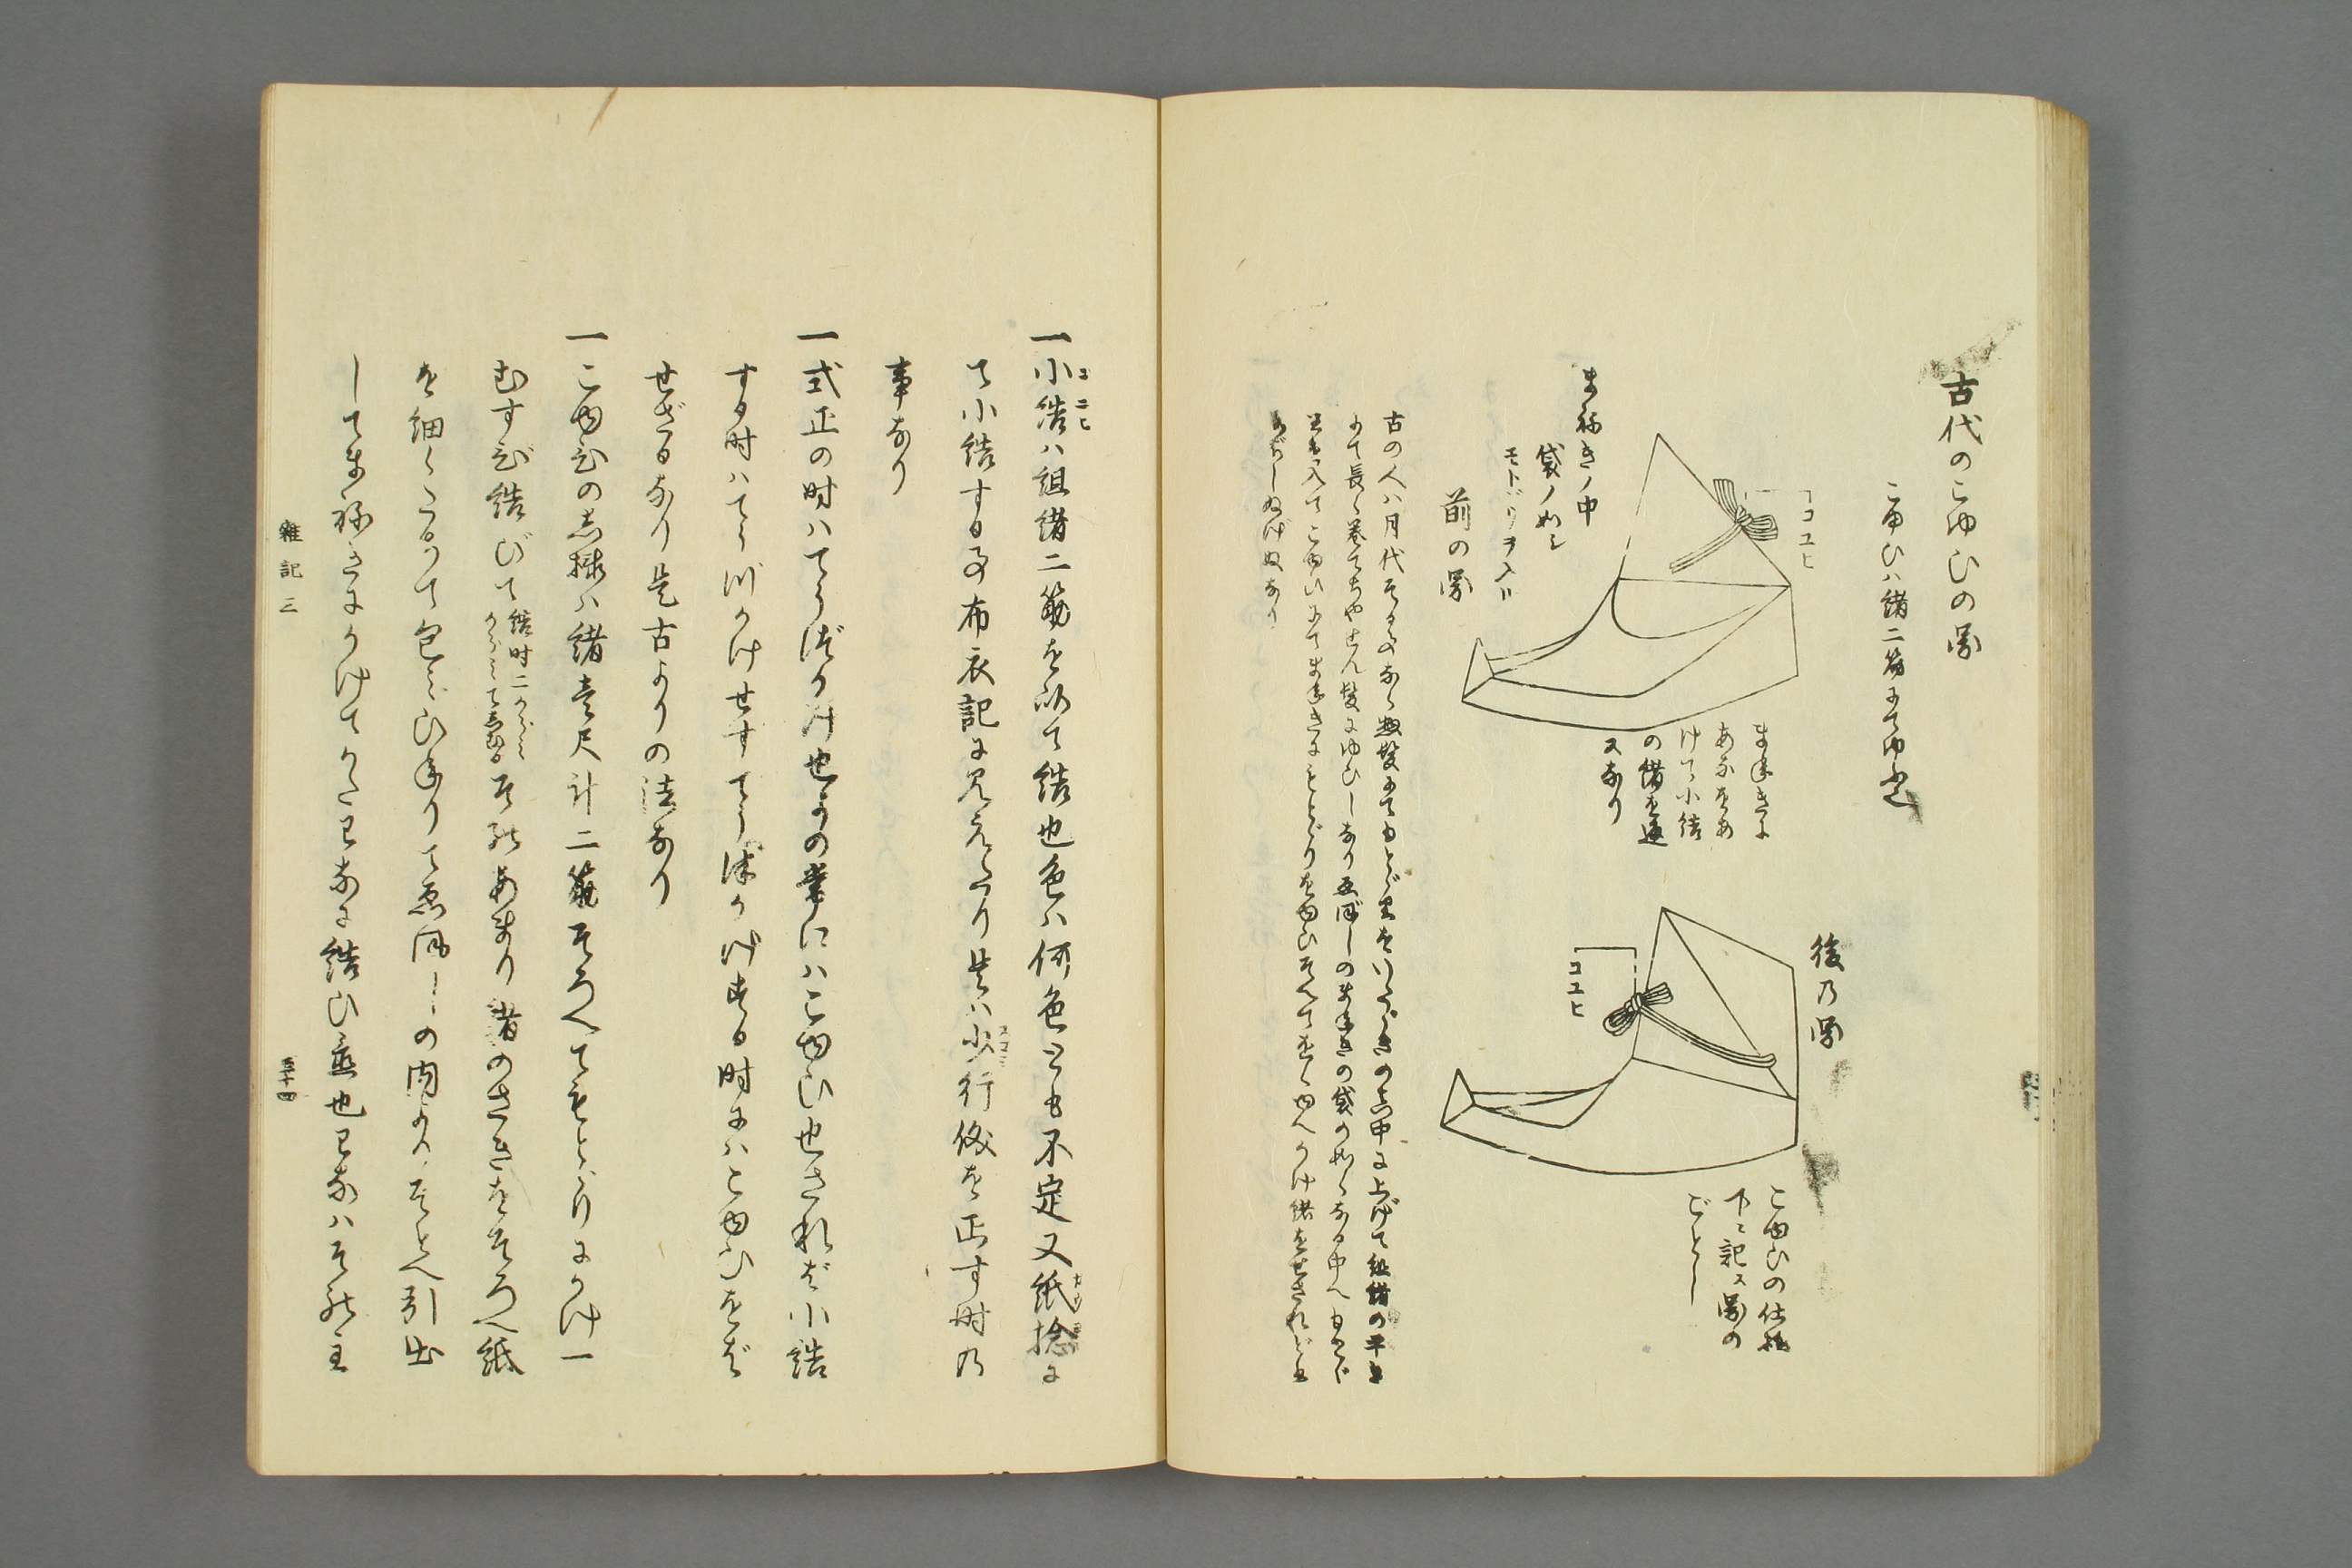 古代のこゆひの図
こゆひハ緒二筋にてゆふ也
コユヒ
まねきノ中
袋ノ如シ
モトヾリヲ入ルヽ
前の図
まねきに
あなをあ
けて小結
の緒を通
スなり
後乃図
コユヒ
こゆひの仕様
下ニ記ス図の
ごとし
古の人ハ月代そる事なく惣髪にてもとゞりをいたゞきの真中に上げて組緒の平
にて長く巻てちやせん髪にゆひしなりゑぼしのまねきの袋の如くなる中へもとゞ
りを入てこゆひにてまねきにもとゞりをゆひそへてをくゆへかけ緒をせざれどもゑ
ぼしぬけぬなり
一小結ハ組緒二筋を以て結也色ハ何色とも不定又紙捻に
て小結する事布衣記に見えたり是ハ少行儀を正す時乃
事なり
一式正の時ハてうづかけ也常の業にハこゆひ也されば小結
する時ハてうづかけせすてうづかけする時にハこゆひをば
せざるなり是古よりの法なり
一こゆひの志様ハ緒壱尺計二筋そろへてもとゞりにかけ一
むすび結びて結時二からミからミてしむるそれあまり緒のさきをそろへ紙
を細くたちて包ミひねりてゑぼしの内よりそとへ引出
してまねきにかけてかたわなに結ひ置也わなハそれ主
雑記三
五十四